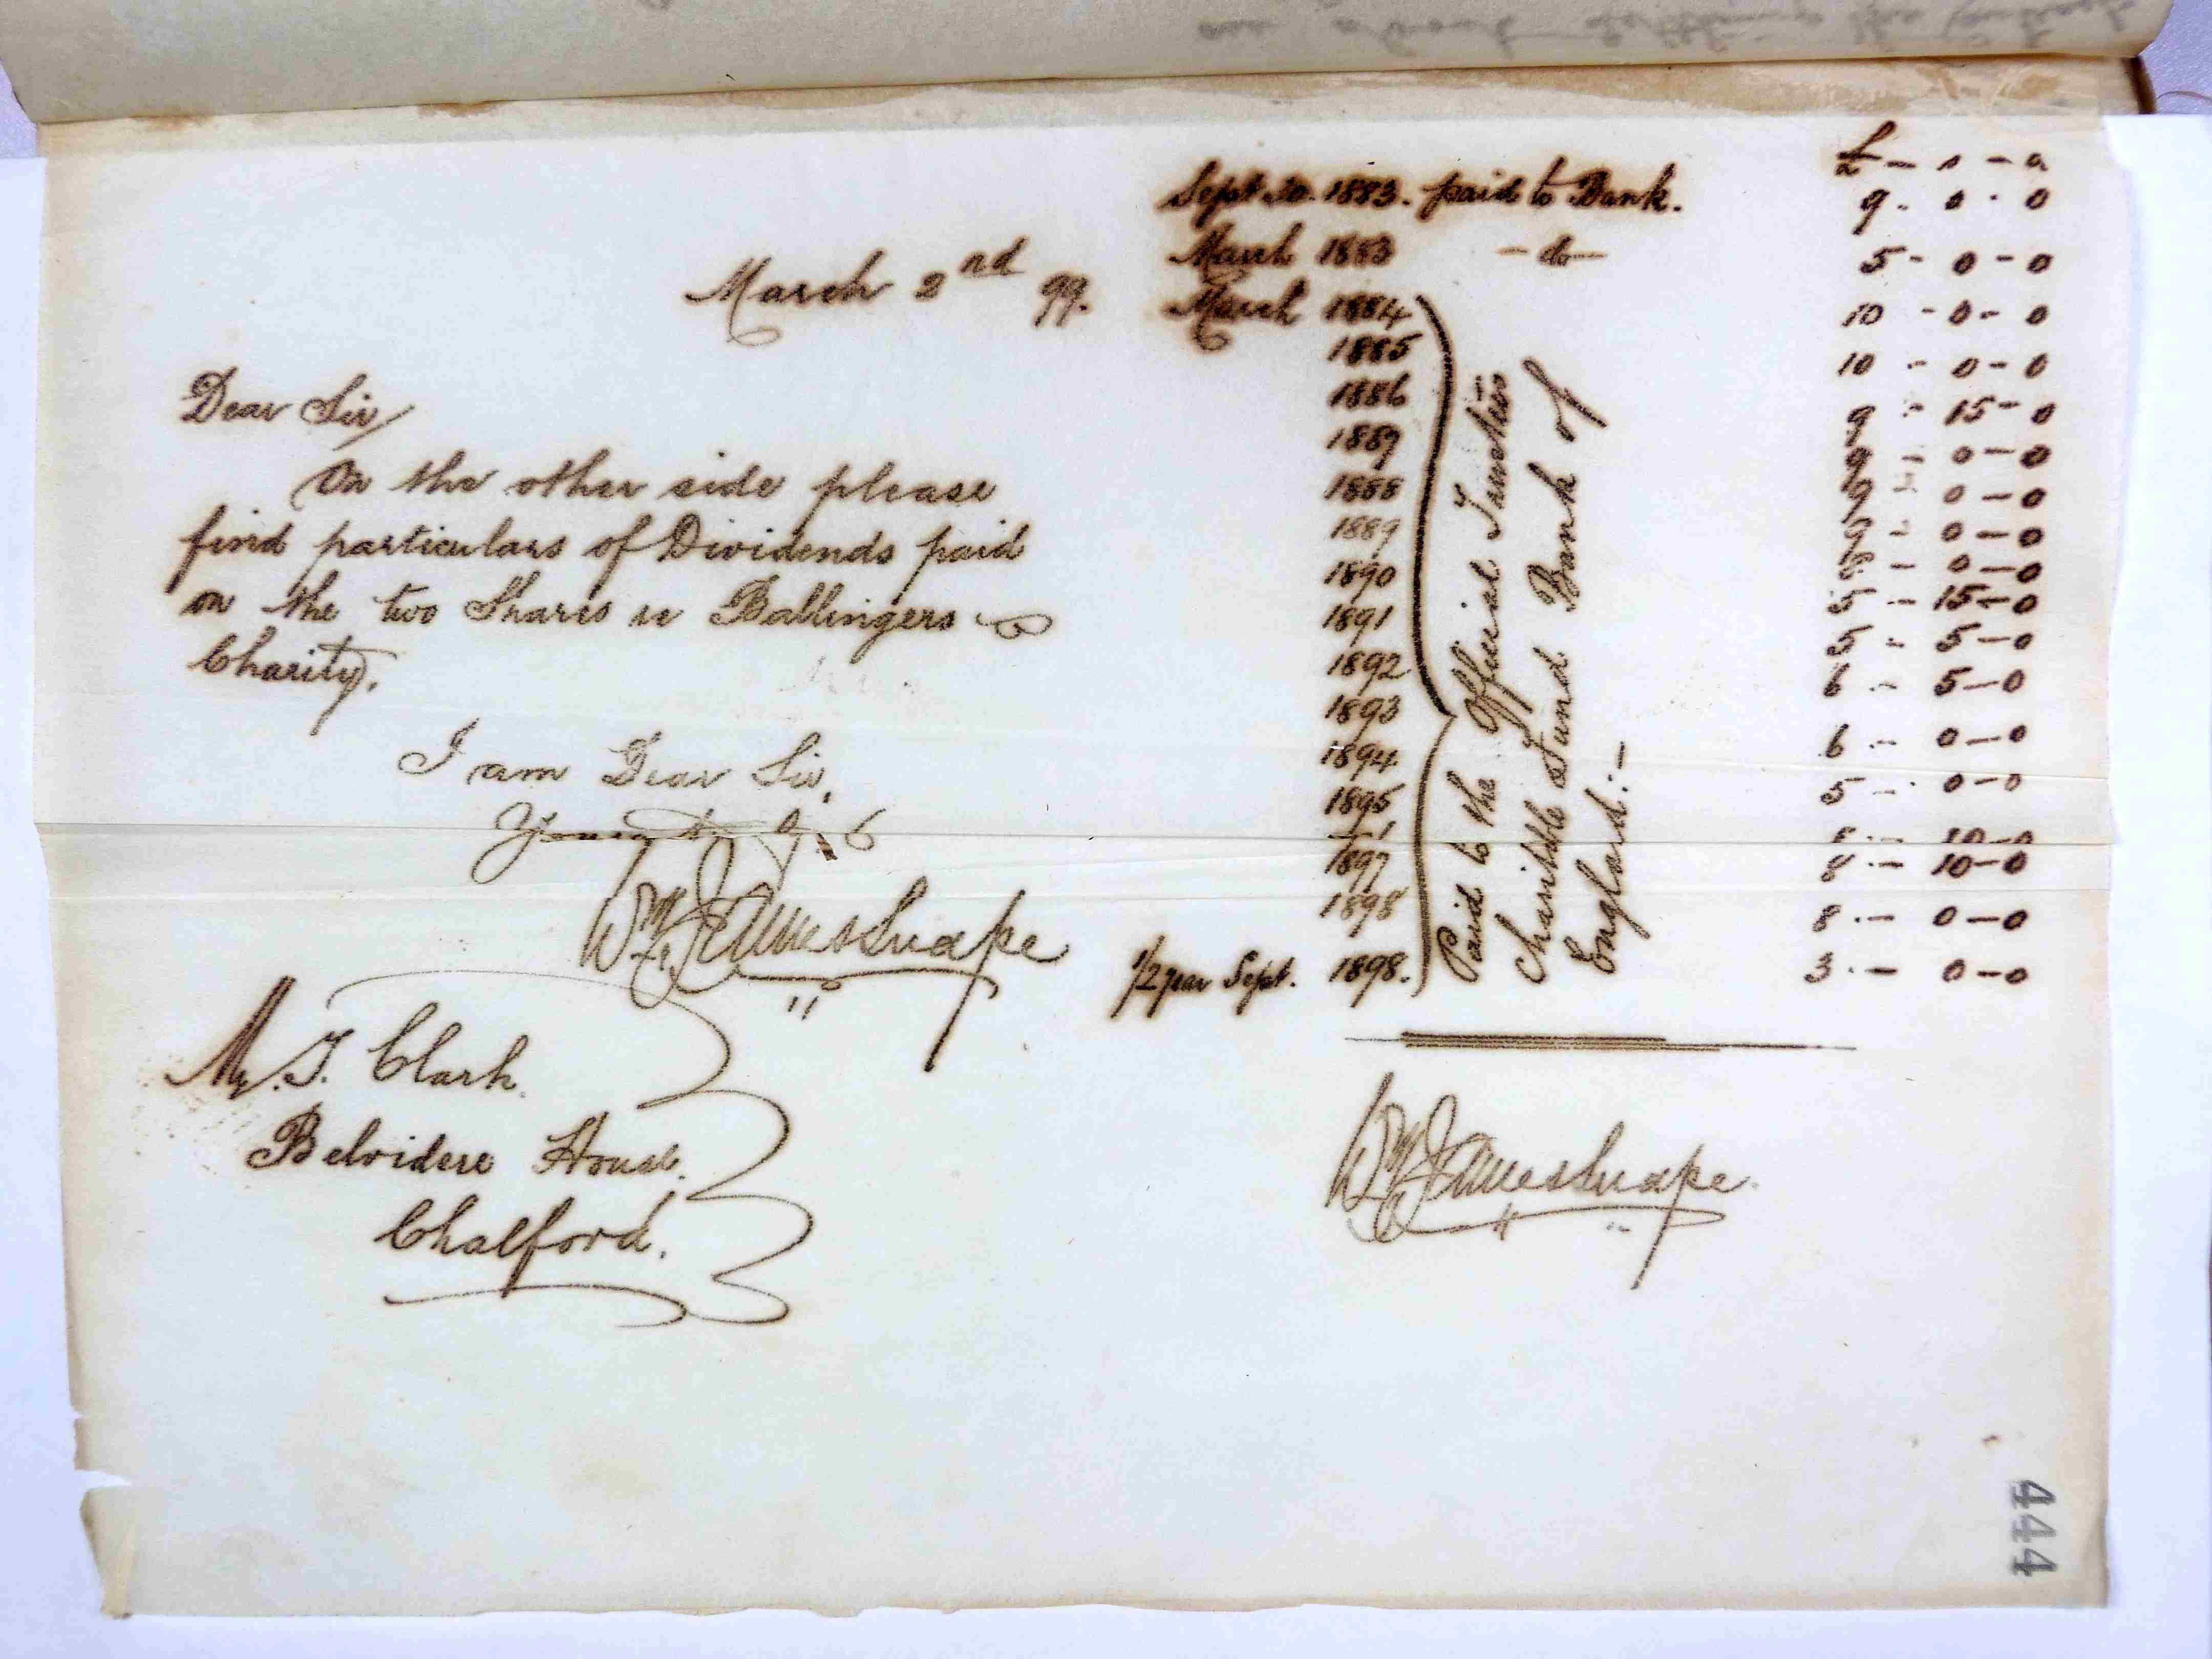 March 2nd 99.
Dear Sir/
On the other side please
find particulars of Dividends paid
on the two Shares in Ballingers
Charity.
I am Dear Sir,
Wm Jameshuape
Mr. T. Clark.
Belvidere House.
Chalford.
£ - s - d
Sept 30. 1883. paid to Bank. 9 - 0 - 0
March 1883 - do - 5 - 0 - 0
March 1884 10 - 0 - 0
1885 10 - 0 - 0
1886 9 - 15 - 0
1887 9 - 0 - 0
1888 9 - 0 - 0
1889 9 - 0 - 0
1890 8 - 0 - 0
1891 5 - 15 - 0
1892 5 - 5 - 0
1893 6 - 5 - 0
1894 6 - 0 - 0
1895 5 - 0 - 0
10 - 0
1897 8 - 10 - 0
1898 8 - 0 - 0
1/2 year Sept. 1898. 3 - 0 - 0
Paid to the Official Trustees
Charitble Fund Bank of
England:-
444